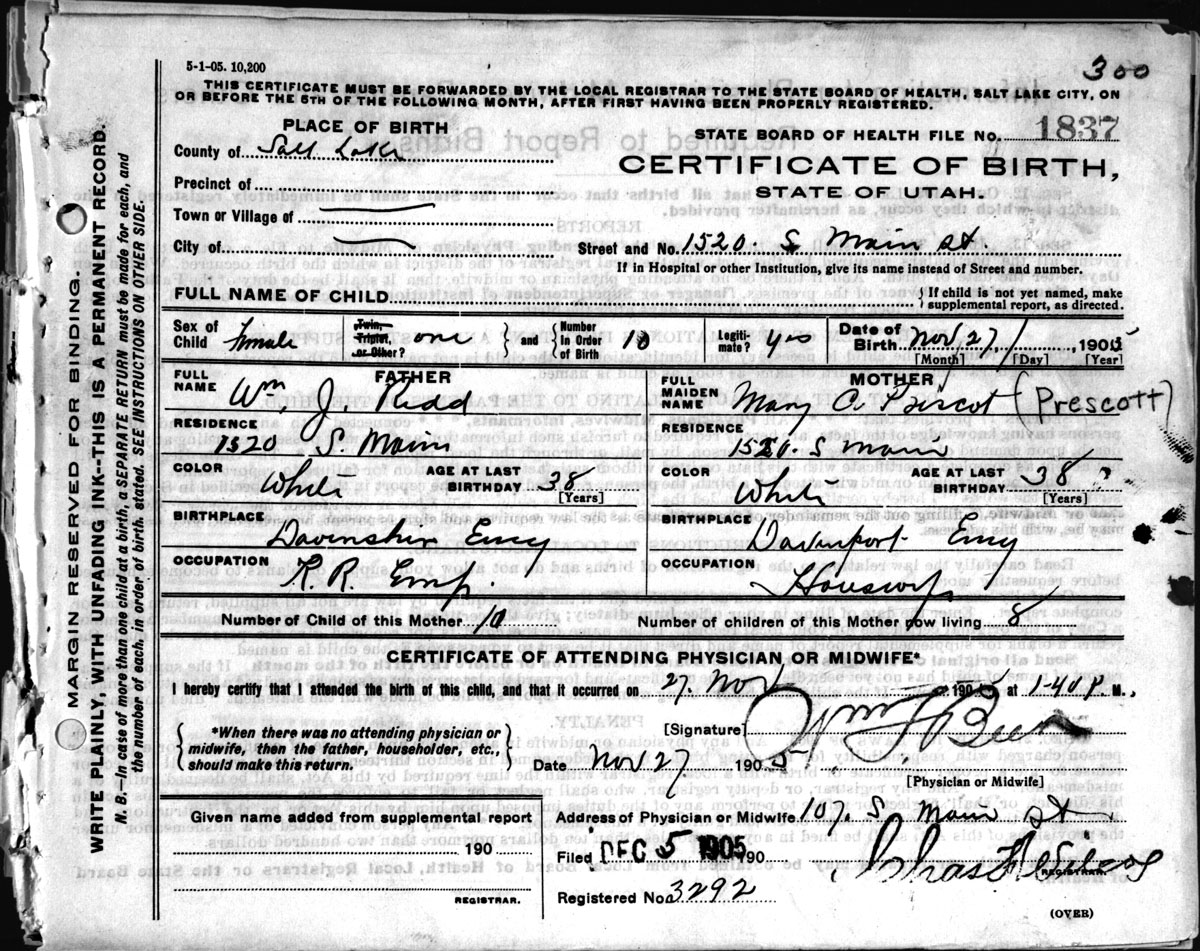 5-1-05. 10,200
300
THIS CERTIFICATE MUST BE FORWARDED BY THE LOCAL REGISTRAR TO THE STATE BOARD OF HEALTH, SALT LAKE CITY, ON
OR BEFORE THE 5TH OF THE FOLLOWING MONTH, AFTER FIRST HAVING BEEN PROPERLY REGISTERED.
MARGIN RESERVED FOR BINDING.
WRITE PLAINLY, WITH UNFADING INK--THIS IS A PERMANENT RECORD.
N. B.—In case of more than one child at a birth, a SEPARATE RETURN must be made for each, and
the number of each, in order of birth stated. SEE INSTRUCTIONS ON OTHER SIDE.
PLACE OF BIRTH
STATE BOARD OF HEALTH FILE No. 1837
County of Salt Lake
CERTIFICATE OF BIRTH,
Precinct of
STATE OF UTAH.
Town or Village of
City of
Street and No. 1520. S Main St.
If in Hospital or other Institution, give its name instead of Street and number.
FULL NAME OF CHILD
{ If child is not yet named, make
supplemental report, as directed.
Sex of Child Female
Twin, Triplet, or Other? one } and { Number In Order of Birth 10
Legiti-mate? yes
Date of Birth Nov 27, 1905
[Month] [Day] [Year]
FATHER
FULL NAME Wm. J. Kidd
RESIDENCE
1520 S. Main
COLOR White
AGE AT LAST BIRTHDAY 38
[Years]
BIRTHPLACE
OCCUPATION R. R. Emp.
MOTHER
FULL MAIDEN NAME Mary A. Priscot (Prescott)
RESIDENCE
1520. S Main
COLOR White
AGE AT LAST BIRTHDAY 38 ?
[Years]
BIRTHPLACE Davenport Eng
OCCUPATION
Number of Child of this Mother 10
Number of children of this Mother now living 8
CERTIFICATE OF ATTENDING PHYSICIAN OR MIDWIFE*
I hereby certify that I attended the birth of this child, and that it occurred on 27. Nov 1905 at 1-40 P. M.,
{ *When there was no attending physician or
midwife, then the father, householder, etc.,
should make this return. }
[Signature]
Date Nov 27 1905
[Physician or Midwife]
Given name added from supplemental report
190
REGISTRAR.
Address of Physician or Midwife 107. S Main St
Filed DEC 5 1905 190
REGISTRAR.
Registered No. 3292
(OVER)